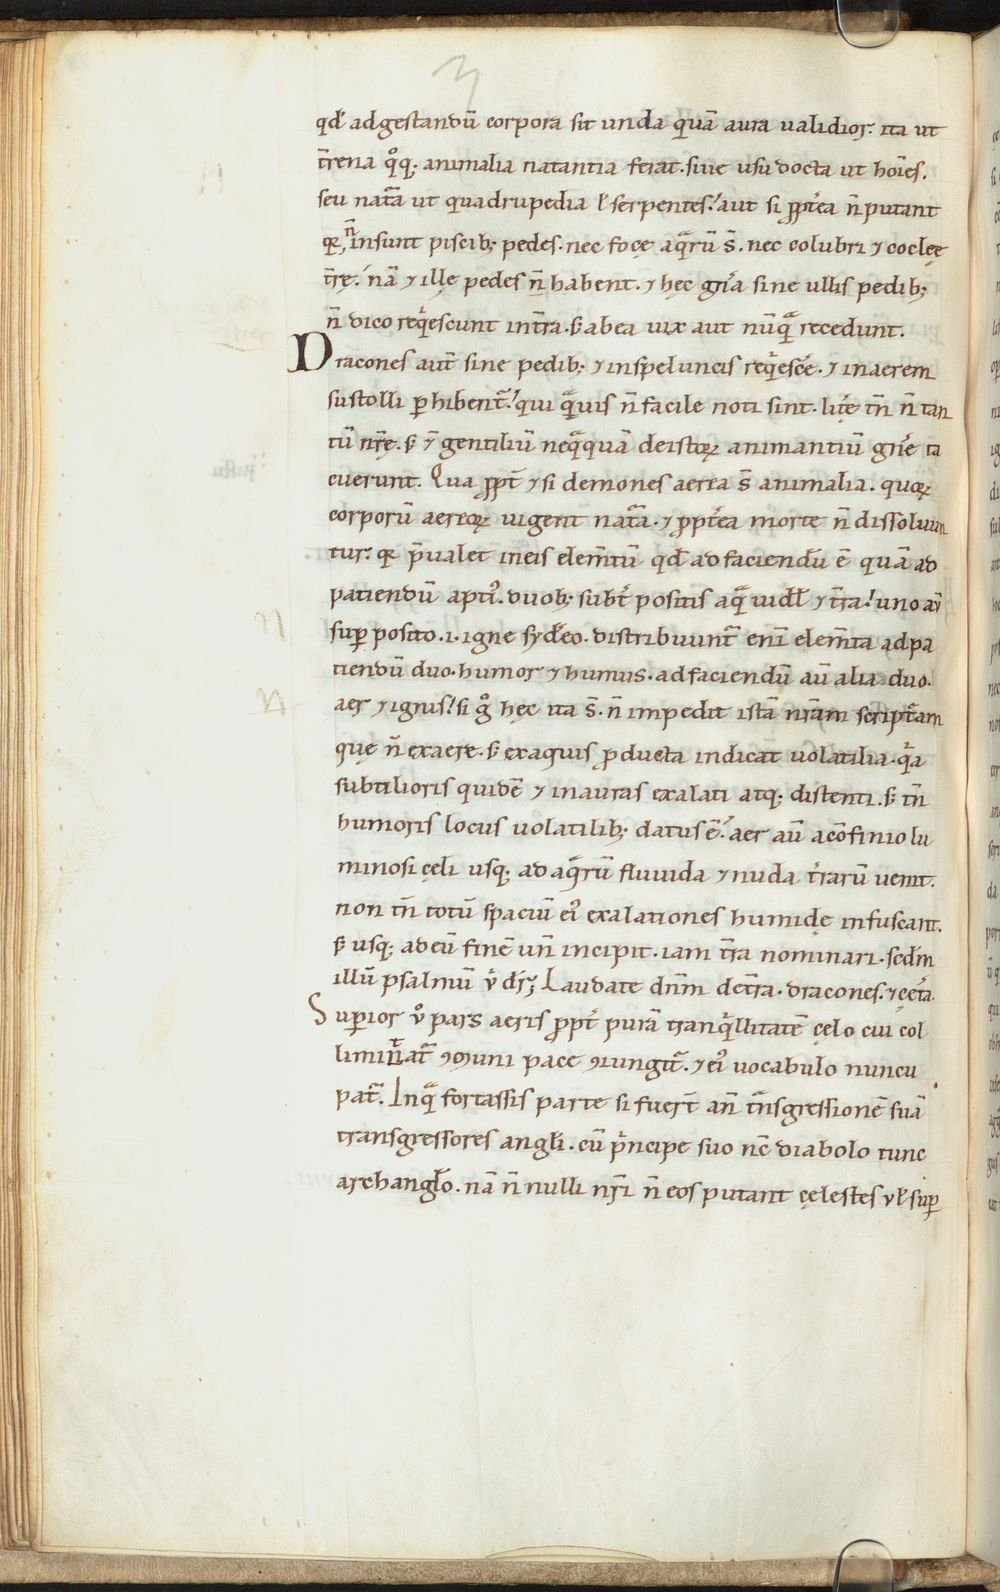 qđ ad gestandū corpora sit unda quā aura ualidior: ita ut
t̄rena q̊q; animalia natantia ferat. siue usu docta ut hoīes.
seu natā ut quadrupedia ł serpentes: aut si ꝓpt̄ea n̄ putant
qꝛ n̄ insunt piscib; pedes. nec focę aq̄rū s̄. nec colubri ⁊ cocleę
t̄rę. nā ⁊ illę pedes n̄ habent. ⁊ hęc gn̄a sine ullis pedib;
n̄ dico req̇escunt int̄ra. s; abea uix aut nūq̄ recedunt.
Dracones aut̄ sine pedib; ⁊ inspeluncis req̇escē. ⁊ inaerem
sustolli ꝑhibent̄: qui q̄uis n̄ facile noti sint. lit̄ę tn̄ n̄ tan
tū nr̄ę. s; ⁊ gentiliū neq̄quā deistoꝝ animantiū gn̄e ta
cuerunt. Qua ꝓpt̄ ⁊ si demones aerea s̄ animalia. quoꝝ
corporū aereoꝝ uigent natā. ⁊ ꝓpt̄ea morte n̄ dissoluun
tur: qꝛ p̄ualet ineis elem̄tū qđ ad faciendū ē quā ad
patiendū apti᷒. duob; subt̄ positis aq̄ uidł ⁊ t̄ra! uno aū
suꝑ posito .i. igne syđeo. distribuunt̄ enī elem̄ta ad pa
tiendū duo. humor ⁊ humus. ad faciendū aū alia duo.
aer ⁊ ignis! si g̊ hęc ita s̄. n̄ impedit istā nr̄am script̄am
quę n̄ exaere. s; exaquis ꝓducta indicat uolatilia. q̇a
subtilioris quidē ⁊ inauras exalati atq; distenti. s; tn̄
humoris locus uolatilib; datus ē: aer aū acōfinio lu
minosi cęli usq; ad aq̄rū fluuida ⁊ nuda t̄rarū uenit.
non tn̄ totū spaciū ei᷒ exalationes humidę infuscant.
s; usq; ad eū finē un̄ incipit. iam t̄ra nominari. scđm
illū psalmū v̇ dr̄; Laudate dn̄m det̄ra. dracones. ⁊ cęt̄a.
Suꝑior v̊ pars aeris ꝓpt̄ purā tranq̇llitatē cęlo cui col
limināt̄ ꝯmuni pace ꝯiungit̄. ⁊ ei᷒ vocabulo nuncu
pat̄. Inq̄ fortassis parte si fuert̄ an̄ tn̄sgressionē suā
transgressores angłi. cū ṗncipe suo nc̄ diabolo tunc
archangło. nā n̄ nulli nr̄i n̄ eos putant cęlestes vł suꝑ